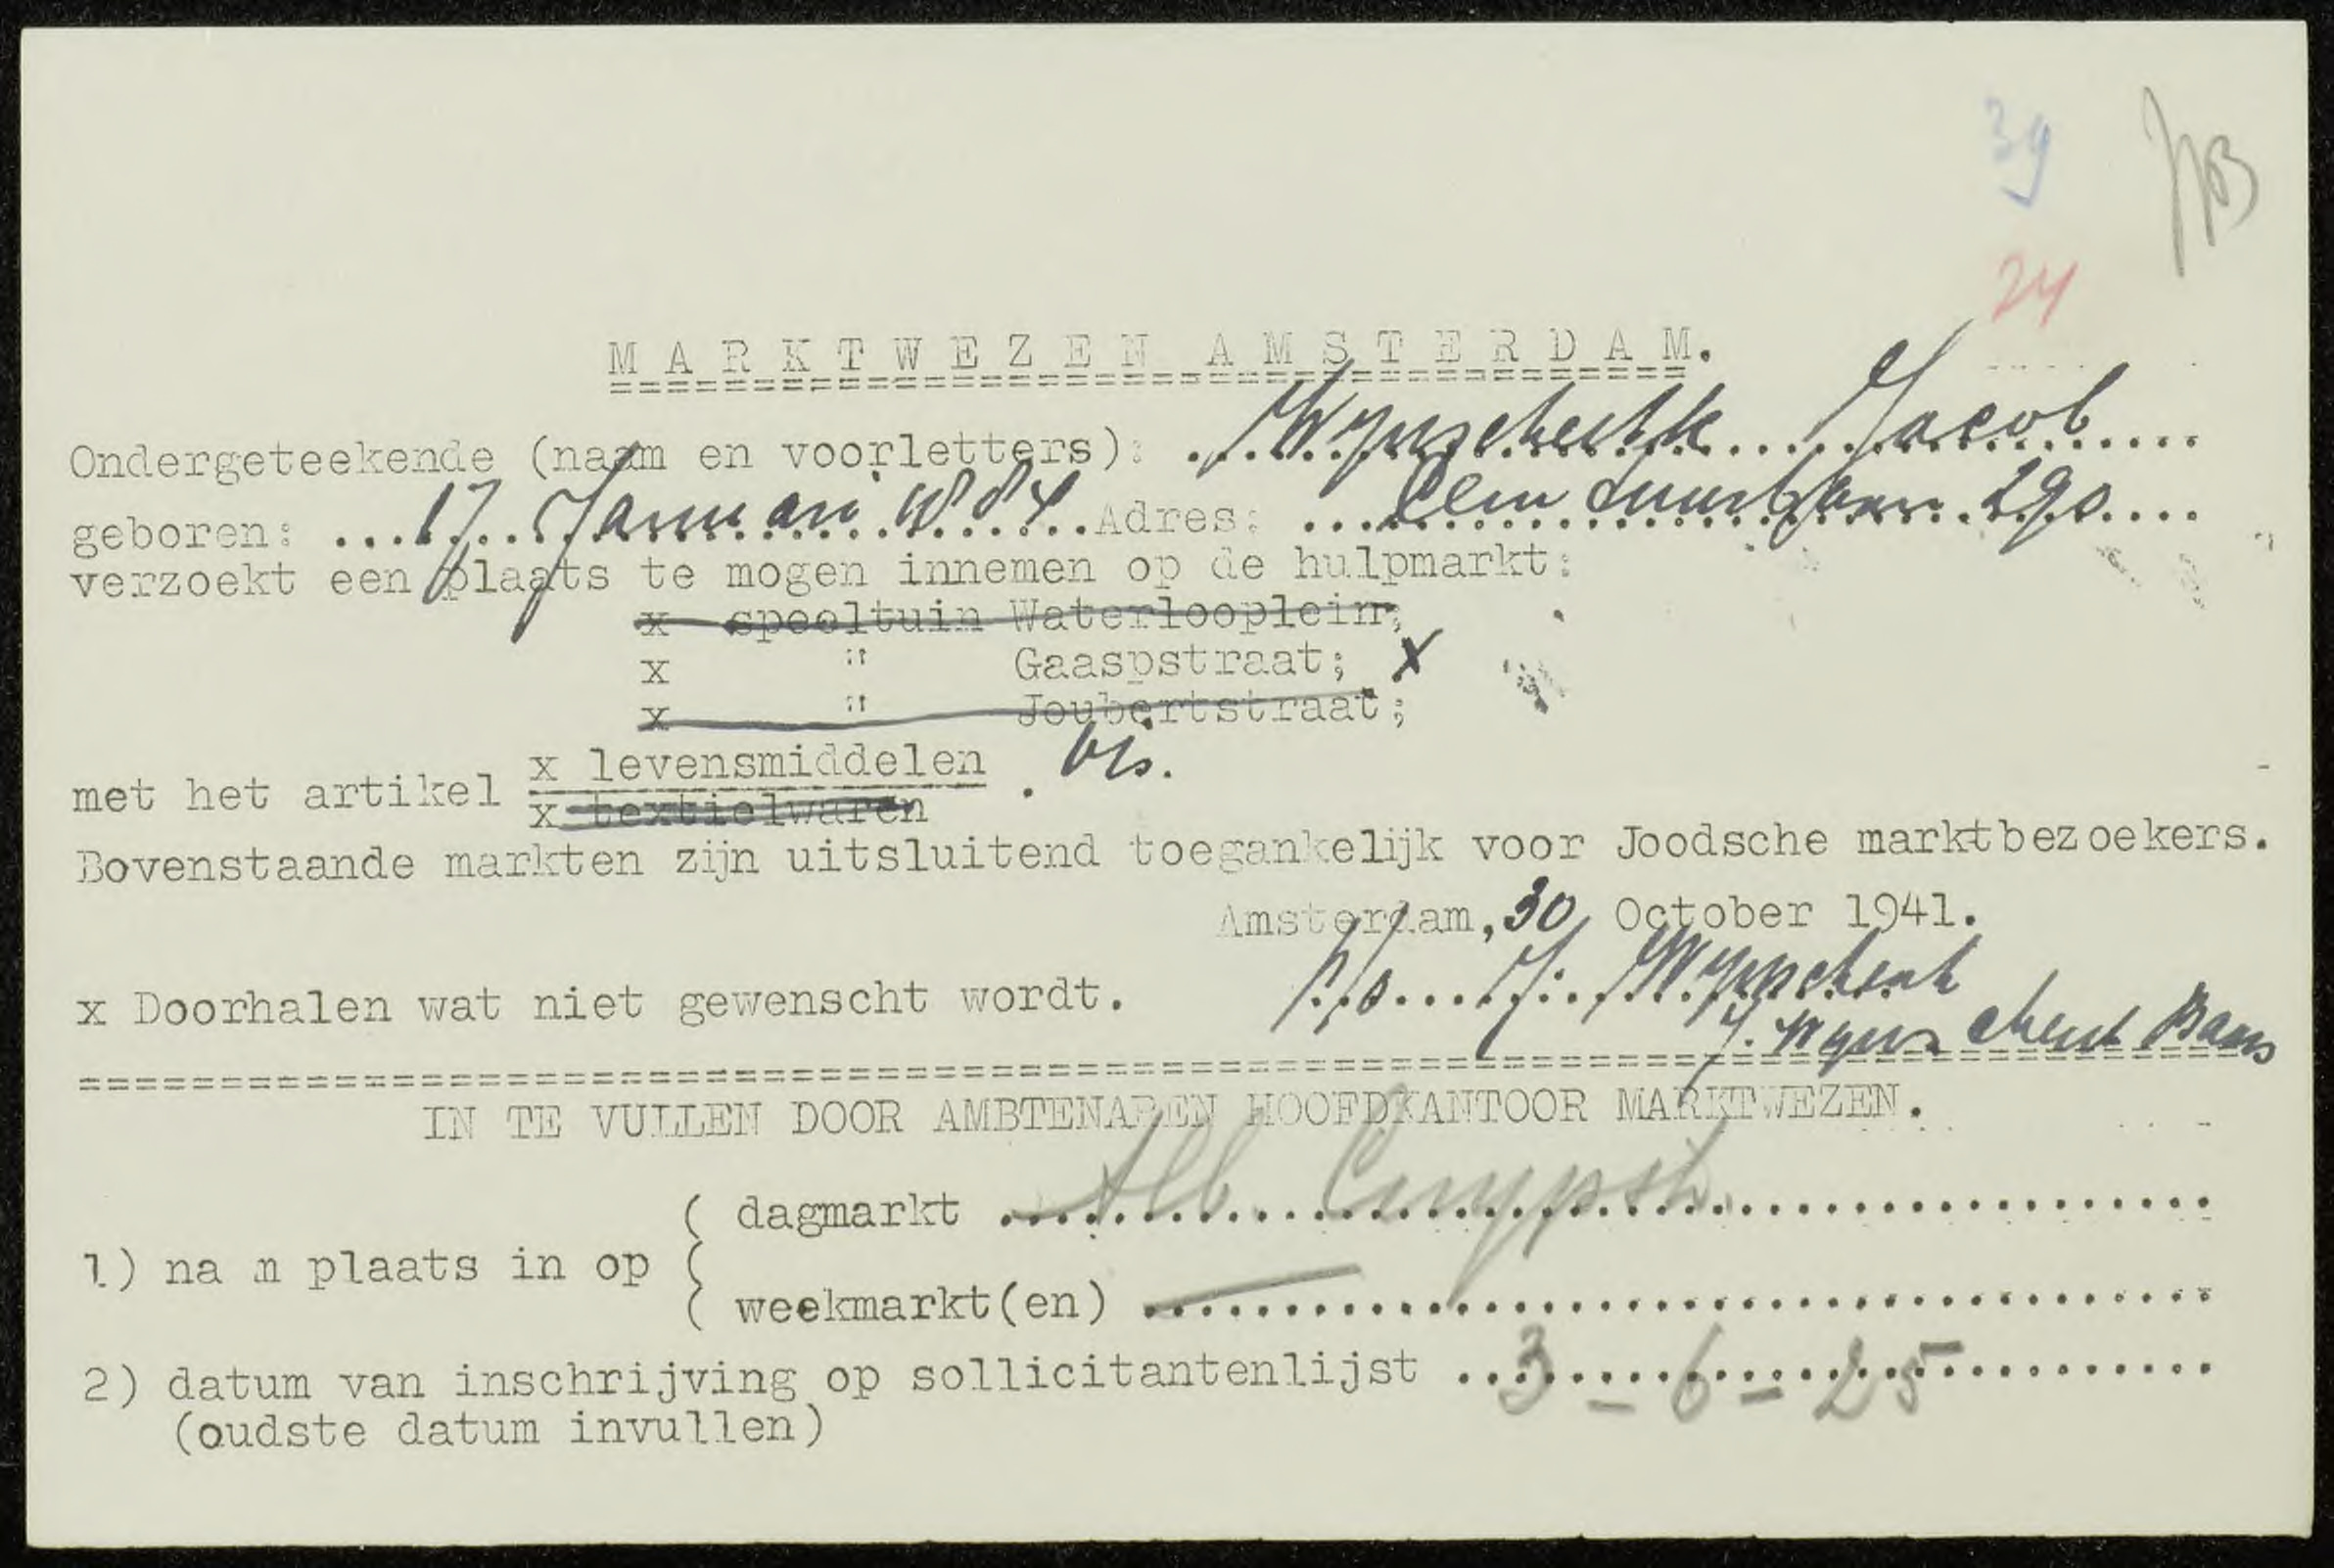 39
24
MARKTWEZEN AMSTERDAM.
Ondergeteekende (naam en voorletters): Wynschenk Jacob
geboren: 17 Januari 1884 Adres: 290
verzoekt een plaats te mogen innemen op de hulpmarkt:
x speeltuin Waterlooplein;
x " Gaaspstraat; x
x " Joubertstraat;
met het artikel x levensmiddelen . vis.
x textielwaren
Bovenstaande markten zijn uitsluitend toegankelijk voor Joodsche marktbezoekers.
Amsterdam, 30 October 1941.
x Doorhalen wat niet gewenscht wordt. J. Wynschenk
J. Wynschenk Bans
IN TE VULLEN DOOR AMBTENAREN HOOFDKANTOOR MARKTWEZEN.
( dagmarkt Alb Cuypstr
1) na m plaats in op (
( weekmarkt(en) —
2) datum van inschrijving op sollicitantenlijst 3-6-25
(oudste datum invullen)